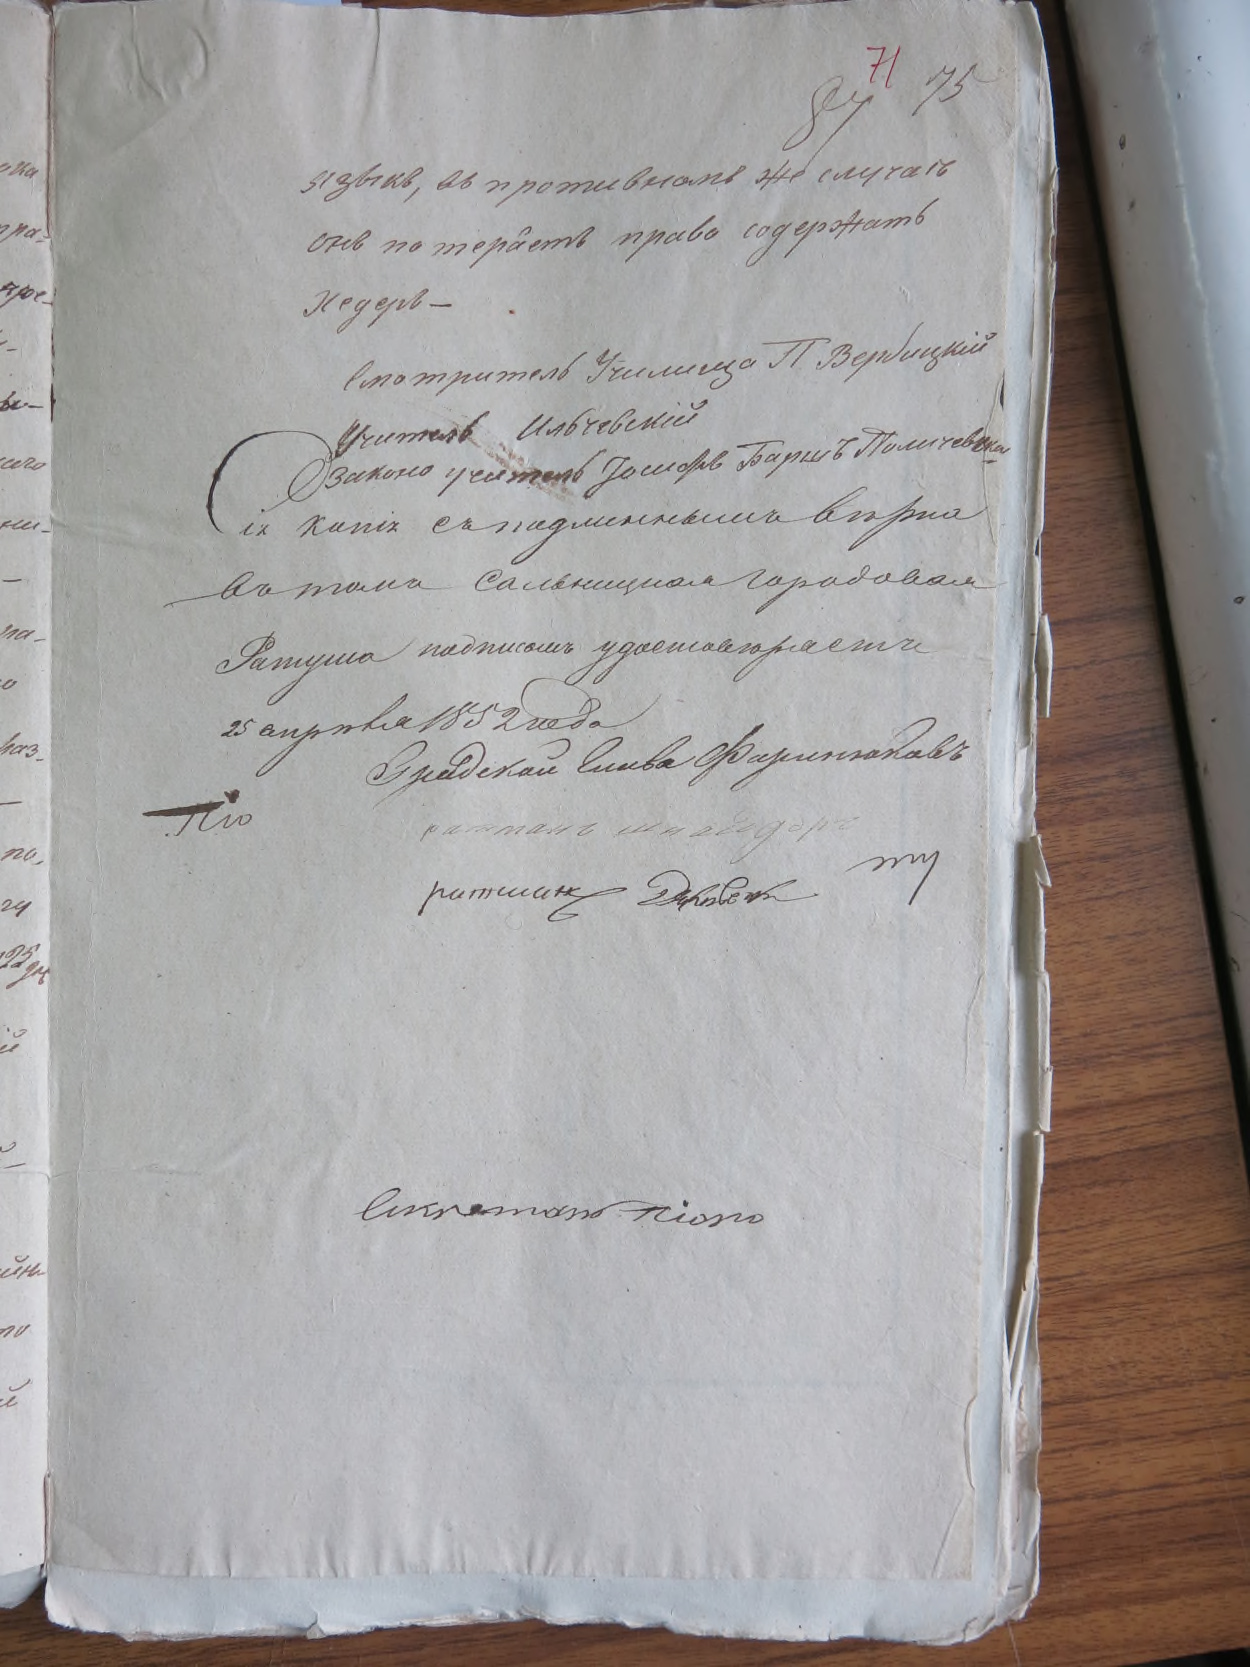 71
87 75
языкъ, въ противномъ же случаѣ
онъ потеряетъ право содержать
Хедеръ—
Смотритель Училища П Вербицкій
Учитель Ильчевскій
Законоучитель Іосифъ Баришъ
Сія копія съ подлиннымъ вѣрна
въ томъ Сальницкая городовая
Ратуша подписомъ удостовѣряетъ
25 апрѣля 1852 года
Градской Глава Фаринюковъ
ратманъ
ратманъ
Секретарь